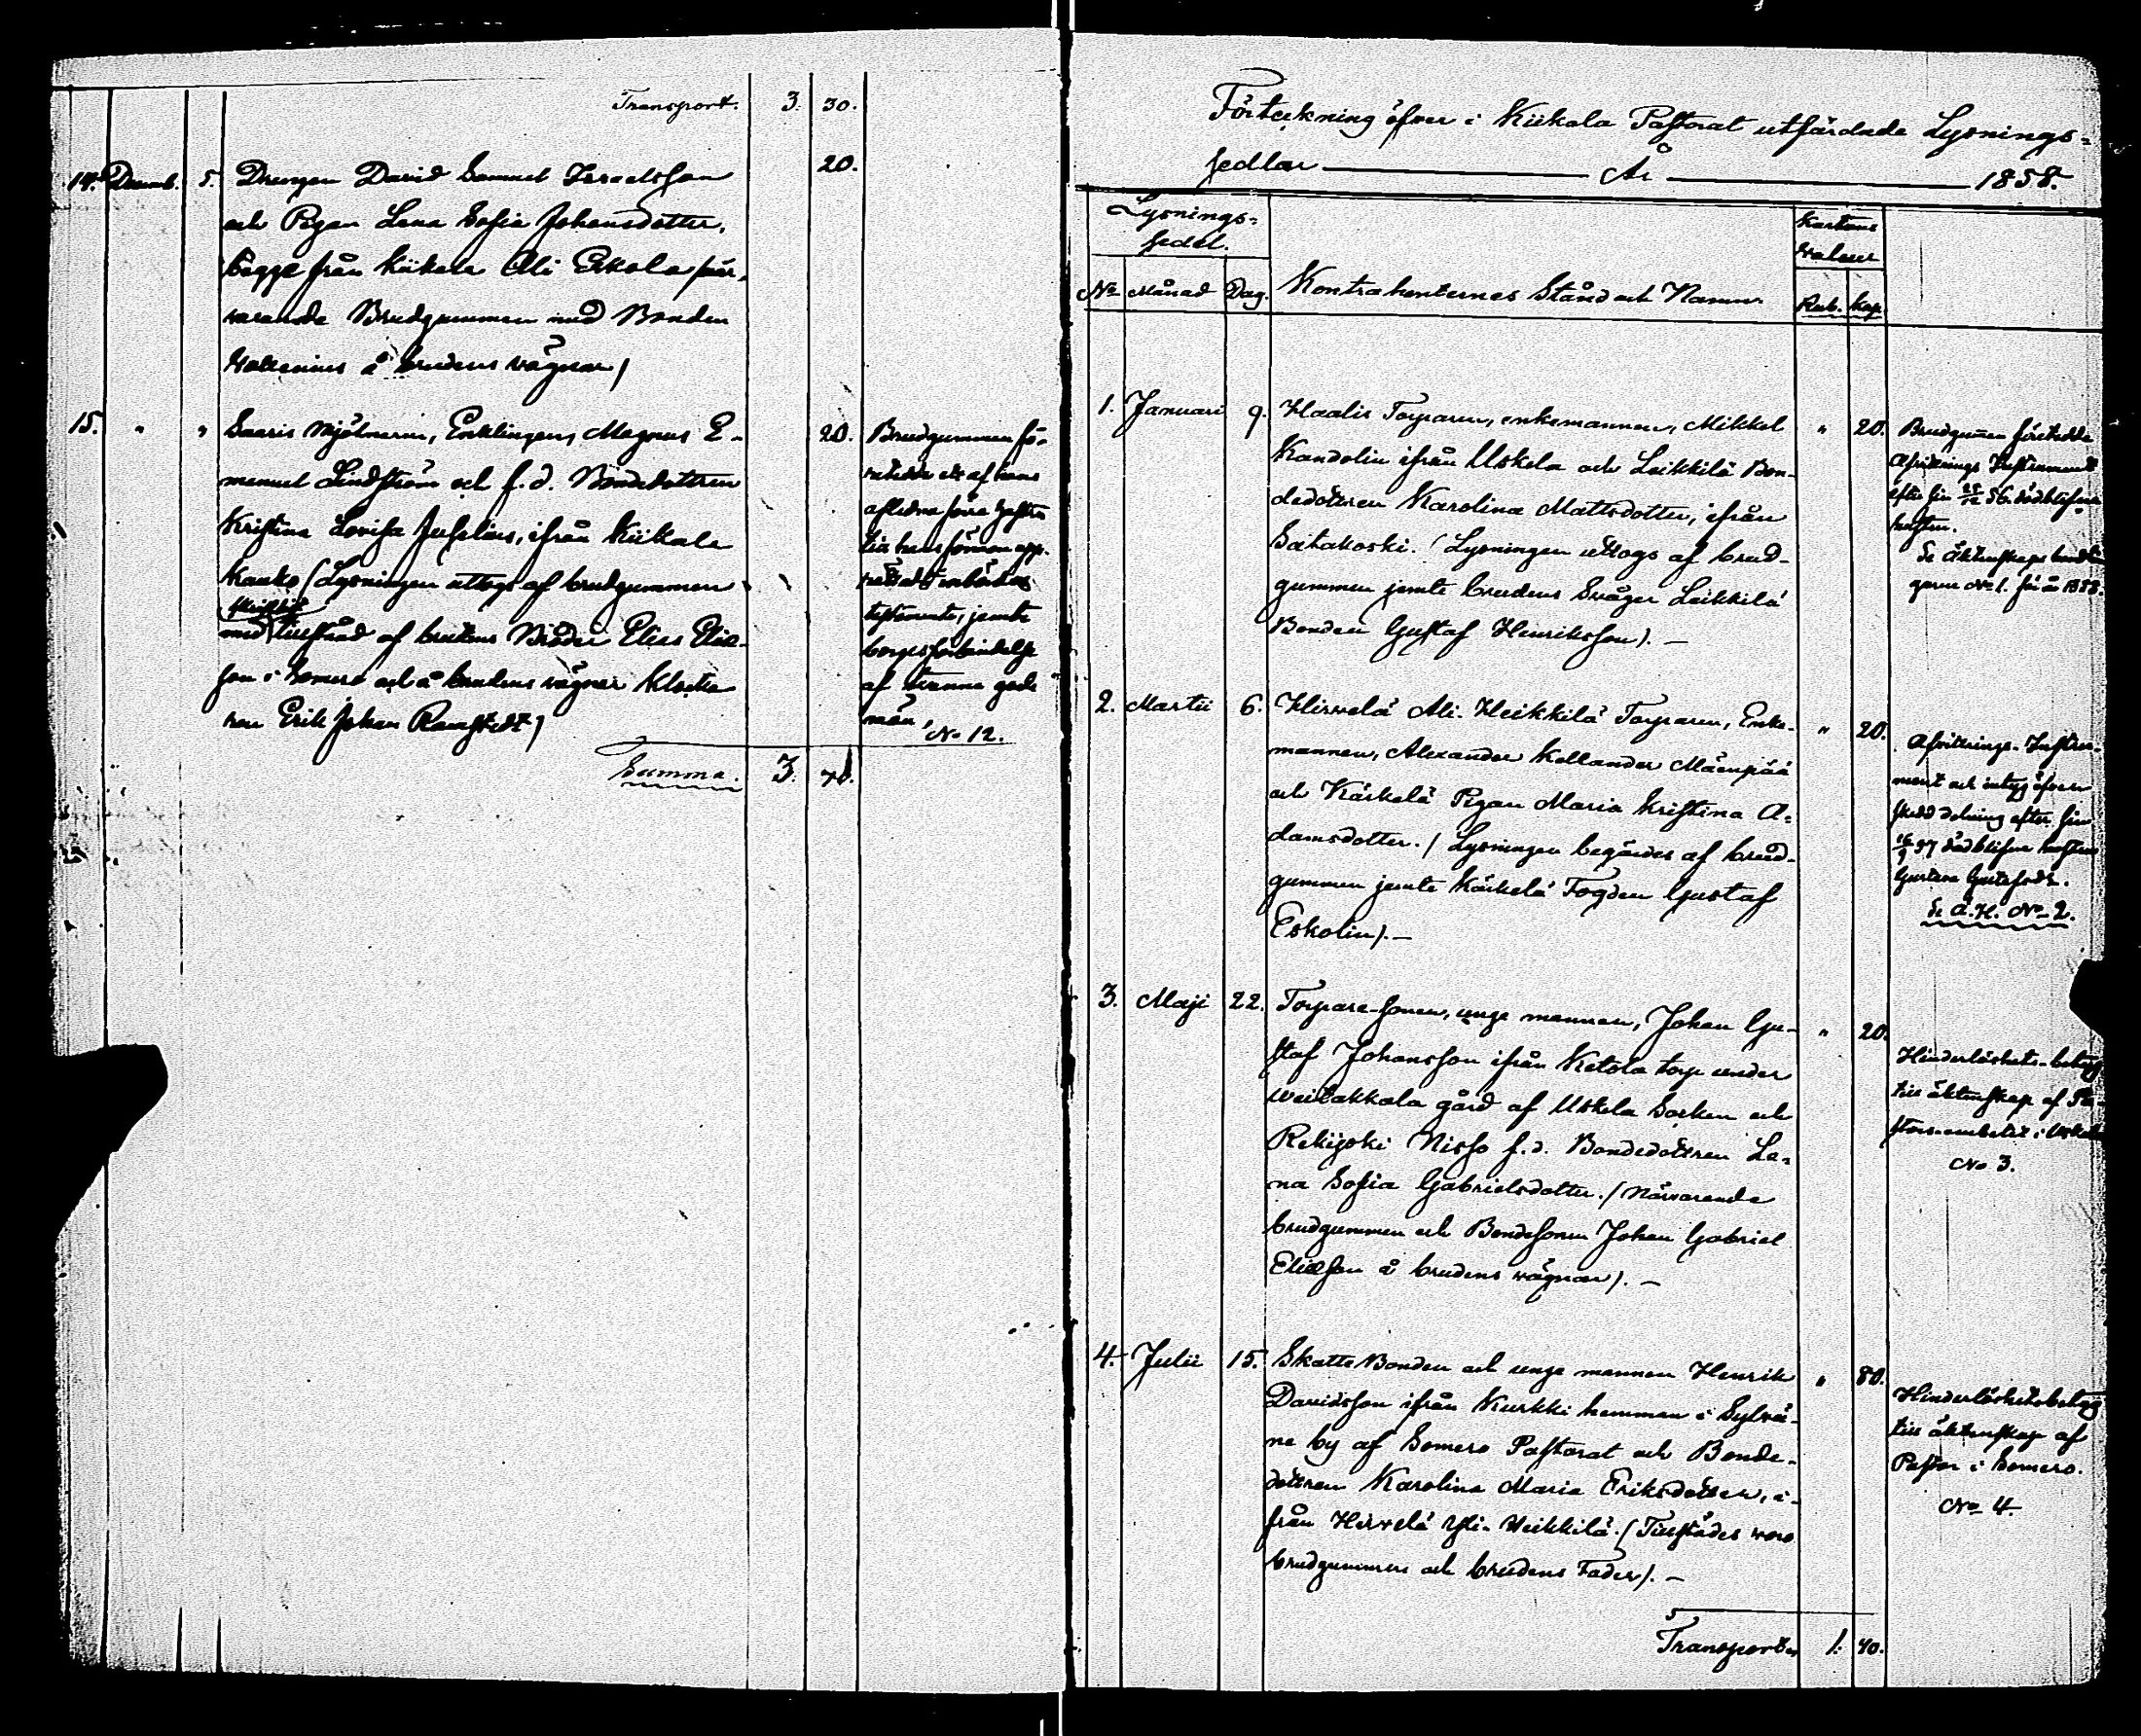 Transport. 3. 30.
14. Decemb. 5. Drengen David Samuel Israelsson 20.
och Pigan Lena Sofia Johansdotter,
begge från Kiikala Ali Eskola /när-
varande Brudgummen med Bonden
å brudens vägnar/
15. " " Saaris Mjölnaren, Enklingen, Magnus E- 20.
manuel Lindström och f.d. Bondedottren
Kristina Lovisa Juselius, ifrån Kiikala
Kauko /Lysningen uttogs af brudgummen
skriftlig
med tillstånd af brudens Broder Elias Elias-
son i Somero och å brudens vägnar Klocka-
ren Erik Johan Ramstedt/
Brudgummen fö-
retedde ett af hans
aflidna förra hustru
testamente, jemte
borgesförbindelse
af tvenne gode
män,
No 12.
Summa. 3. 70.
Förteckning öfver i Kiikala Pastorat utfärdade Lysnings-
sedlar År 1858.
Lysnings-
sedel.
Kartans
Valeur
No Månad Dag. Kontrahenternes Stånd och Namn Rub. kop.
1. Januari 9. Haalis Torparen, enkemannen, Mikkel " 20.
Kandolin ifrån Uskela och Leikkilä Bon-
dedotteren Karolina Mattsdotter, ifrån
Satakoski. (Lysningen uttogs af brud-
gummen jemte brudens Svåger Leikkilä
Bonden Gustaf Henriksson). —
Brudgumen företedde
Afvittrings Instrument
efter sin 56 dödblifna
hustru.
Se Äktenskaps hand-
garne No 1. för år 1858.
2. Martii 6. Hirvelä Ali-Heikkilä Torparen, Enke- " 20.
mannen, Alexander Kellander Mäenpää
och Kärkelä Pigan Maria Kristina A-
damsdotter. / Lysningen begärdes af brud-
gummen jemte Kärkelä Fogden Gustaf
Eskolin). —
Afvittrings-Instru-
ment och intyg öfver
skedd delning efter sin
57 dödblifne hustru
Gustava Gustafsdr.
Se Ä.H. No 2.
3. Maji 22. Torpare-sonen, unge mannen, Johan Gu- " 20.
staf Johansson ifrån Ketola torp under
Veitakkala gård af Uskela Socken och
Rekijoki Nisso f.d. Bondedotteren Le-
na Sofia Gabrielsdotter. / Närvarande
brudgummen och Bondesonen Johan Gabriel
Eliasson å brudens vägnar). —
Hinderlöshets-betyg
till äktenskap af Pa-
stors-embetet i Uskela
No 3.
4. Julii 15. Skatte Bonden och unge mannen Henrik " 80.
Davidsson ifrån Kurkki hemman i Sylvä-
ne by af Somero Pastorat och Bonde-
dotteren Karolina Maria Eriksdotter, i-
från Hirvelä Yli-Heikkilä. (Tillstädes woro
brudgummen och brudens Fader). —
Hinderlöshetsbetyg
till äktenskap af
Pastor i Somero.
No 4.
Transporteras 1. 40.